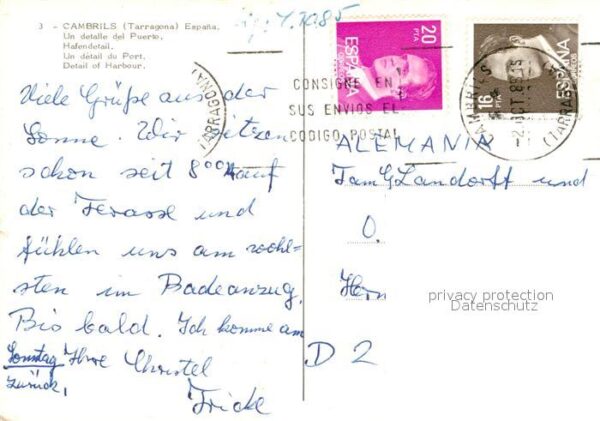 3 - CAMBRILS (Tarragona) España.
Un detalle del Puerto.
Hafendetail.
Un détail du Port.
Detail of Harbour.
Viele Grüße aus der
Sonne. Wir sitzen
schon seit 8 00 auf
der Terasse und
fühlen uns am wohl-
sten im Badeanzug.
Bis bald. Ich komme am
Sonntag Ihre Christel
zurück,
Fricke
20
PTA
ESPAÑA
16
PTA
ESPAÑA
CONSIGNE EN
SUS ENVIOS EL
CODIGO POSTAL
(TARRAGONA)
CAMBRILS
-2 OCT. 85
(TARRAG
ALEMANIA
Fam G Landorff und
O.
Hern
D 2
privacy protection
Datenschutz